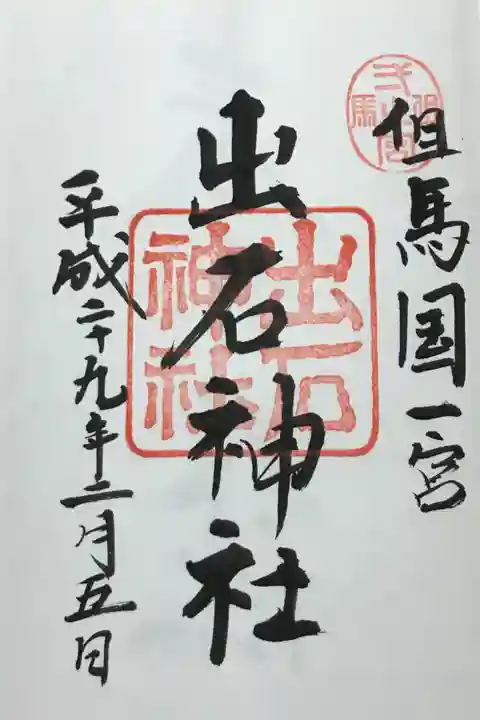 但馬国一宮
出石神社
出石神社
平成二十九年二月五日